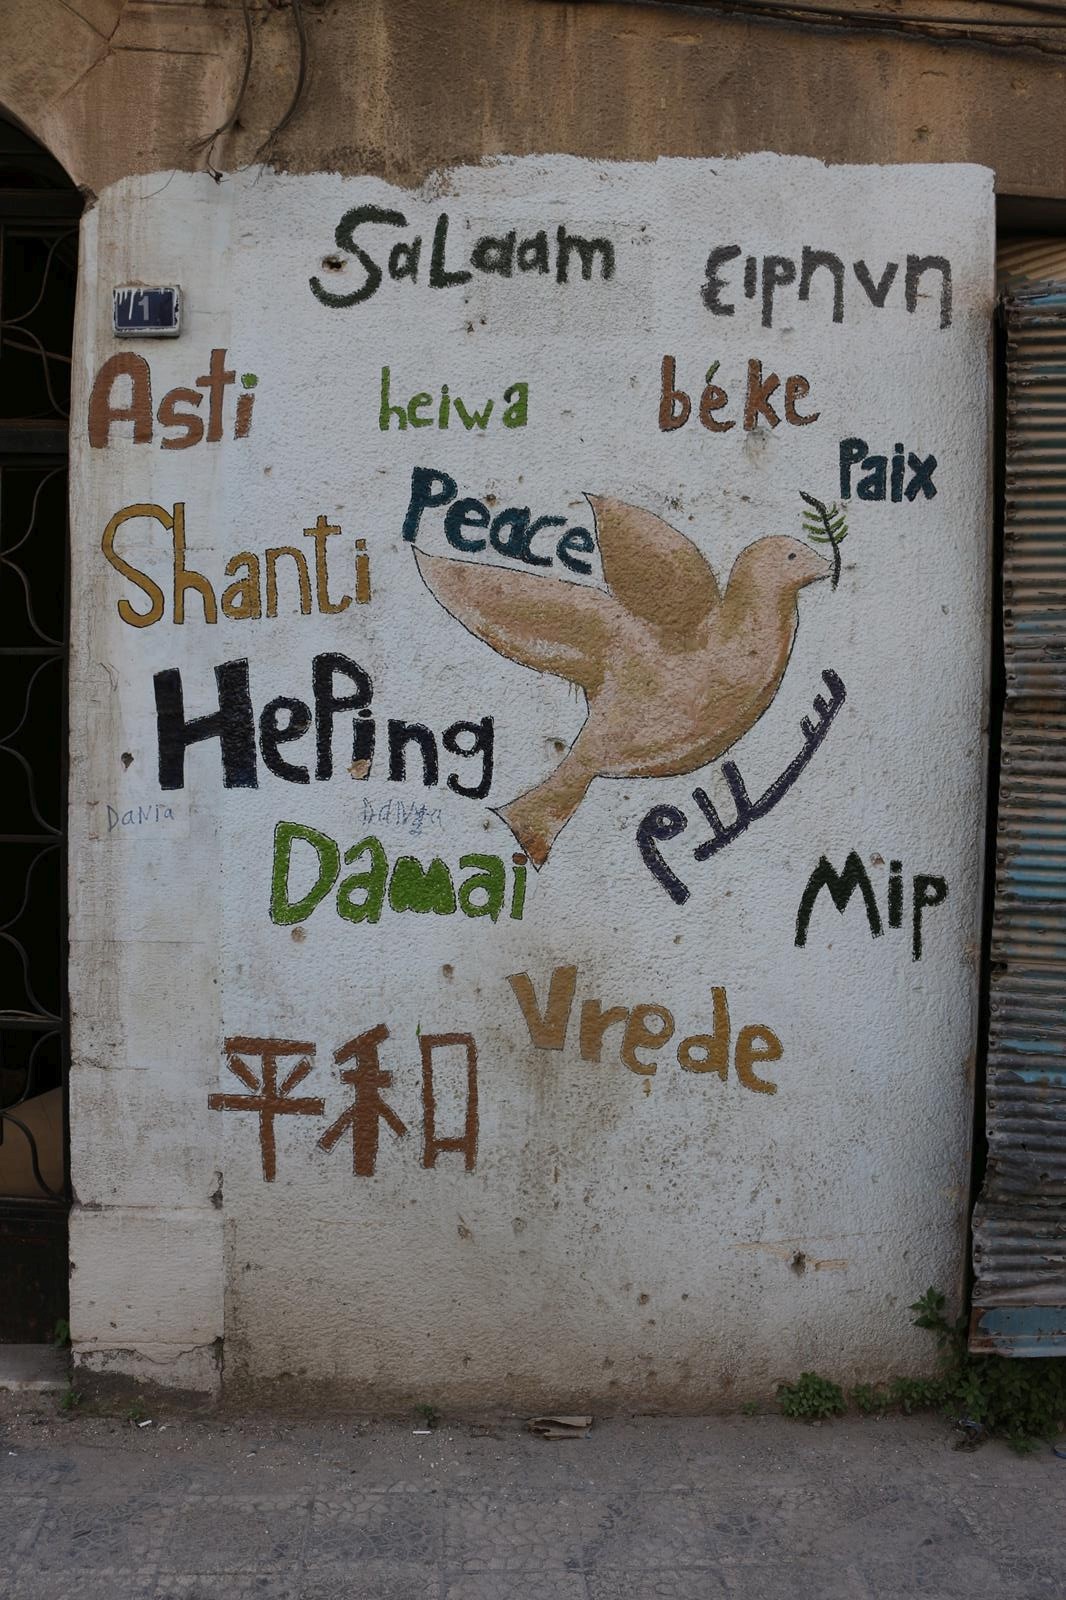 Salaam
ειρηνη
71
Asti
heiwa
béke
Paix
Peace
Shanti
HePing
سلام
Dania
Damai
Mip
Vrede
平和